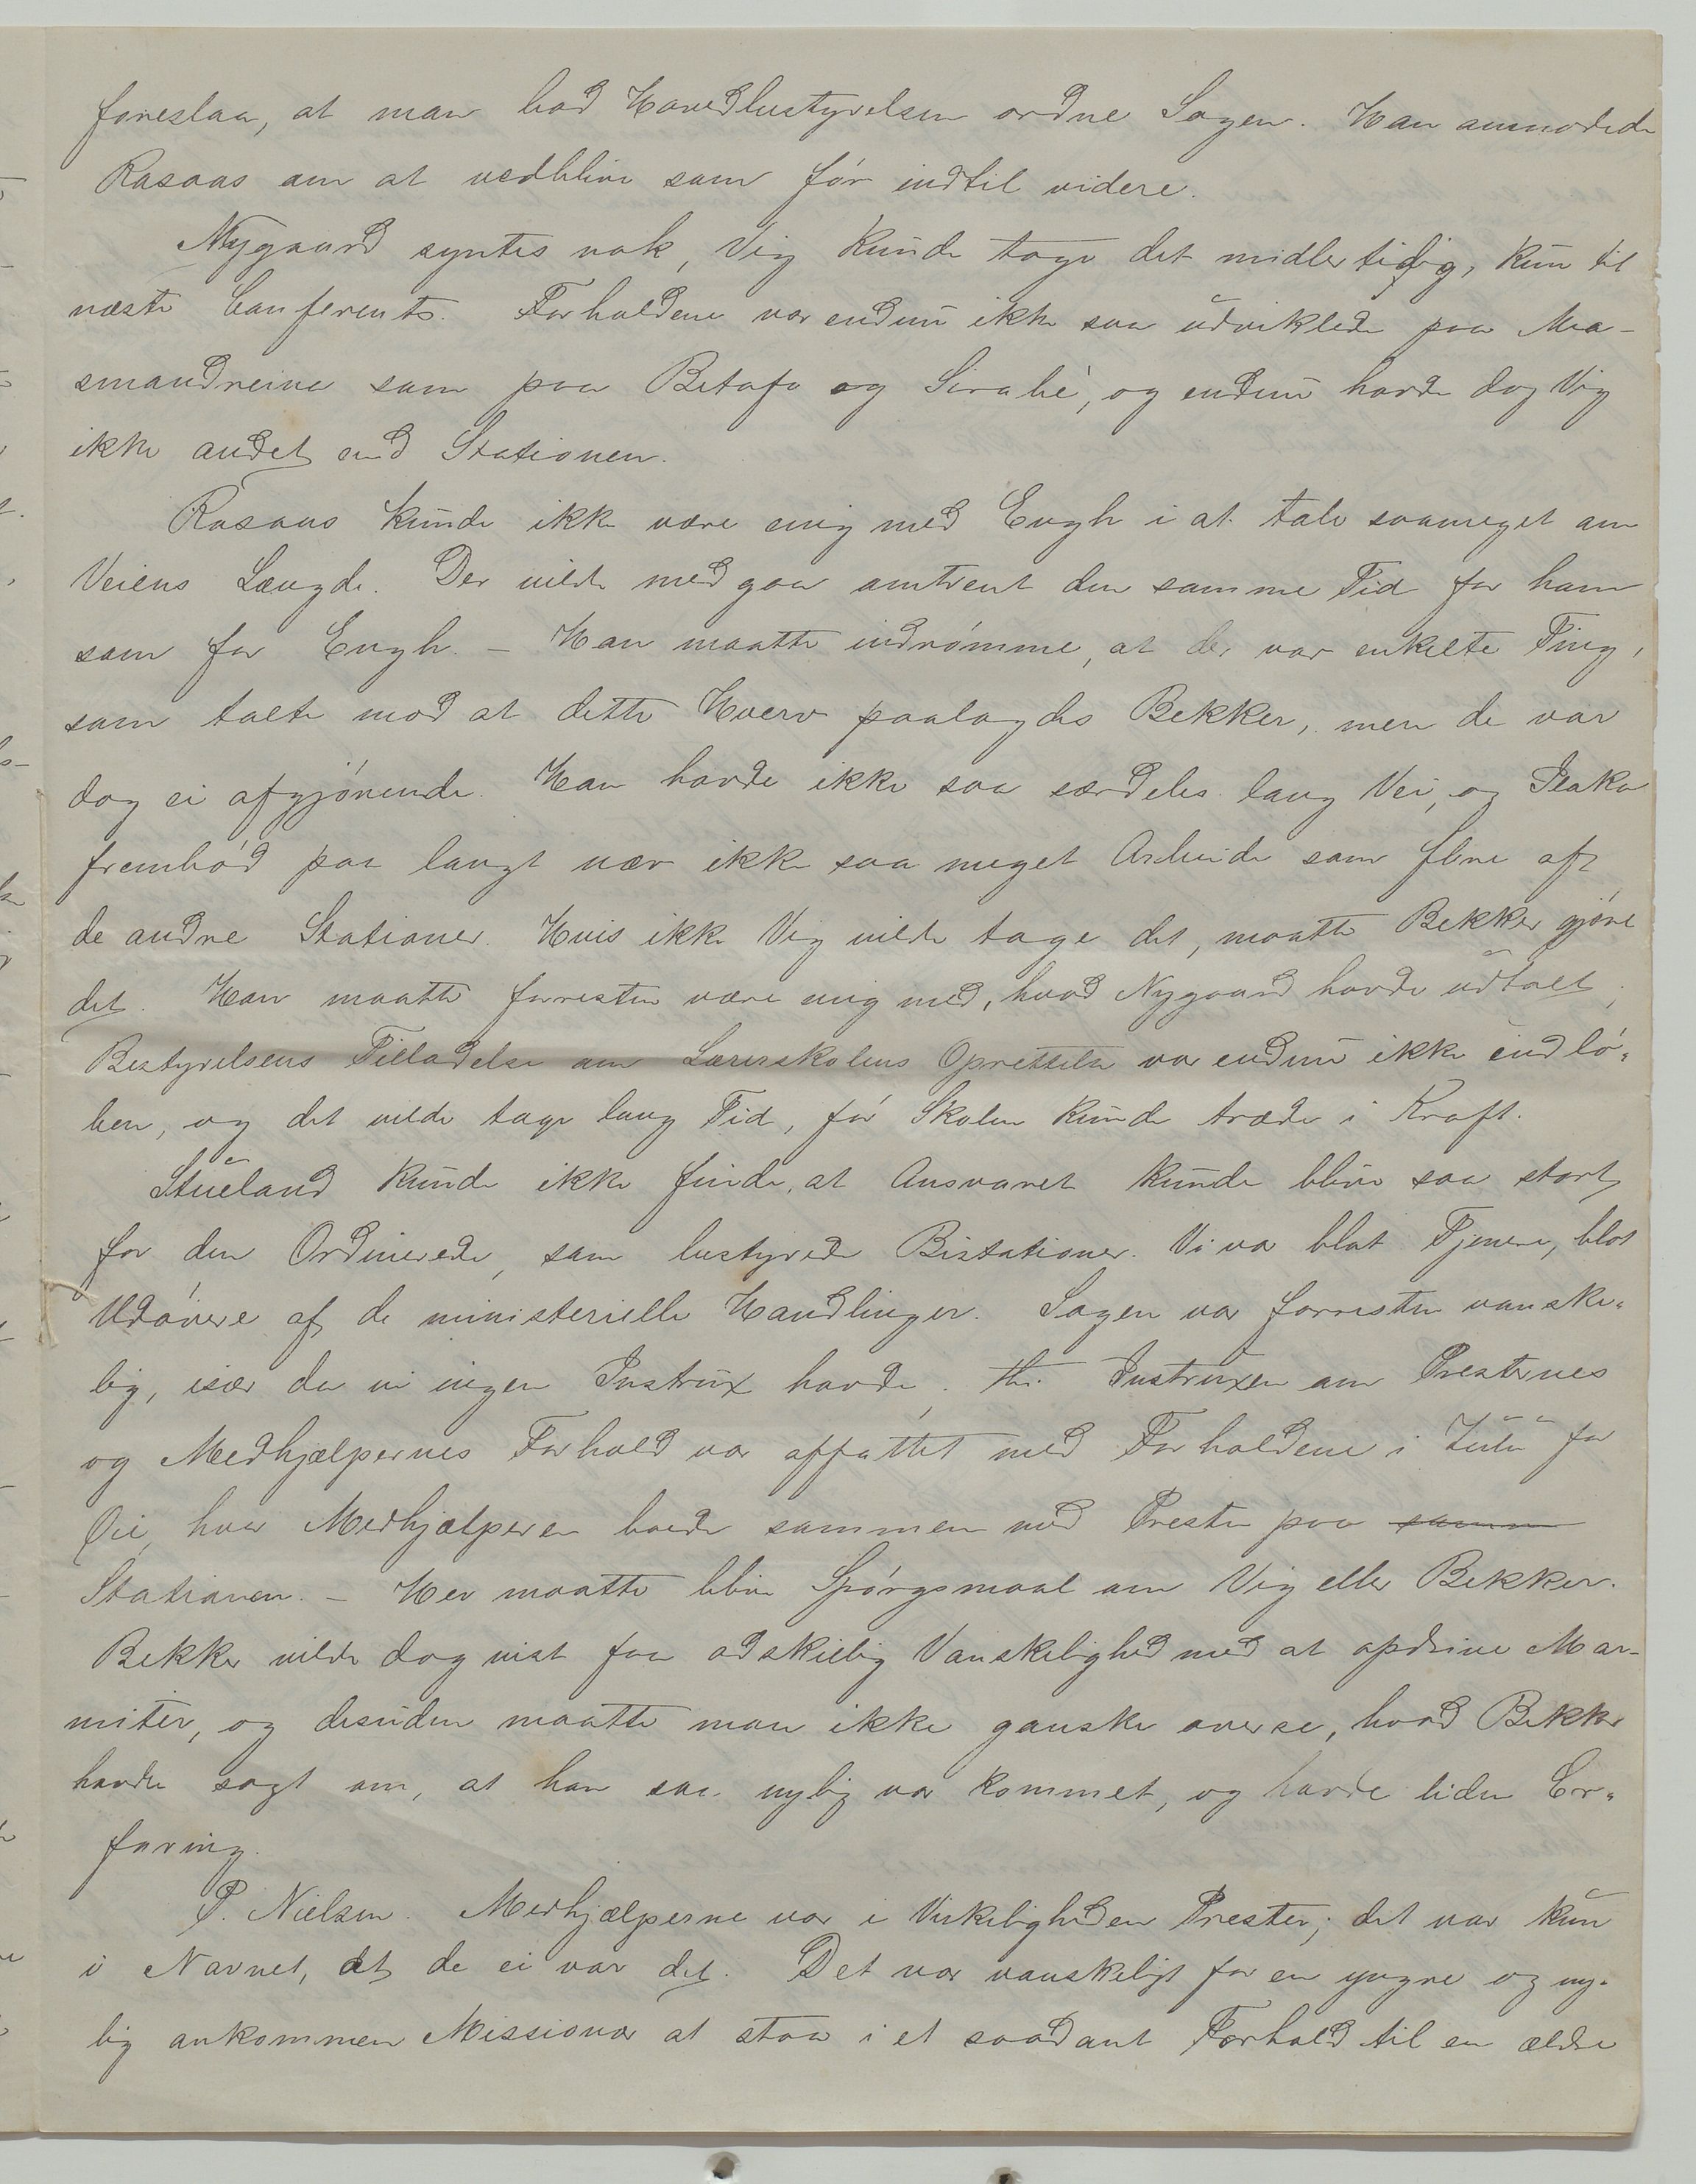 foreslaa, at man bad Hovedbestyrelsen ordne Sagen. Han anmodede
Rosaas om at vedblive som før indtil videre.
Nygaard syntes nok, Vig kunde tage det midlertidig, kun til
næste Conferents. Forholdene var endnu ikke saa udviklede paa Ma-
smandreina som paa Betafo og Sirabé, og endnu havde dog Vig
ikke andet end Stationen.
Rosaas kunde ikke være enig med Engh i at tale saameget om
Veiens Længde. Der vilde medgaa omtrent den samme Tid for ham
som for Engh. – Han maatte indrømme, at der var enkelte Ting,
som talte mod at dette Hverv paalagdes Bekker, men de var
dog ei afgjørende. Han havde ikke saa særdeles lang Vei, og Ilaka
frembød paa langt nær ikke saa meget Arbeide som flere af
de andre Stationer. Hvis ikke Vig vilde tage det, maatte Bekker gjøre
det. Han maatte forresten være enig med, hvad Nygaard havde udtalt;
Bestyrelsens Tilladelse om Lærerskolens Oprettelse var endnu ikke indlø-
ben, og det vilde tage lang Tid, før Skolen kunde træde i Kraft.
Stueland kunde ikke finde, at Ansvaret kunde blive saa stort
for den Ordinerede, som bestyrede Bistationer. Vi var blot Tjenere, blot
Udøvere af de ministerielle Handlinger. Sagen var forresten vanske-
lig, især da vi ingen Instrux havde, thi Instruxen om Presternes
og Medhjælpernes Forhold var affattet med Forholdene i Zulu for
Øie, hvor Medhjælperen boede sammen med Presten paa samme
Stationen. – Her maatte blive Spørgsmaal om Vig eller Bekker.
Bekker vilde dog vist faa adskillig Vanskelighed med at opdrive Mar-
miter, og desuden maatte man ikke ganske overse, hvad Bekker
havde sagt om, at han saa nylig var kommet, og havde liden Er-
faring.
P. Nielsen. Medhjælperne var i Virkeligheden Prester; det var kun
i Navnet, at de ei var det. Det var vanskeligt for en yngre og ny-
lig ankommen Missionær at staa i et saadant Forhold til en ældre